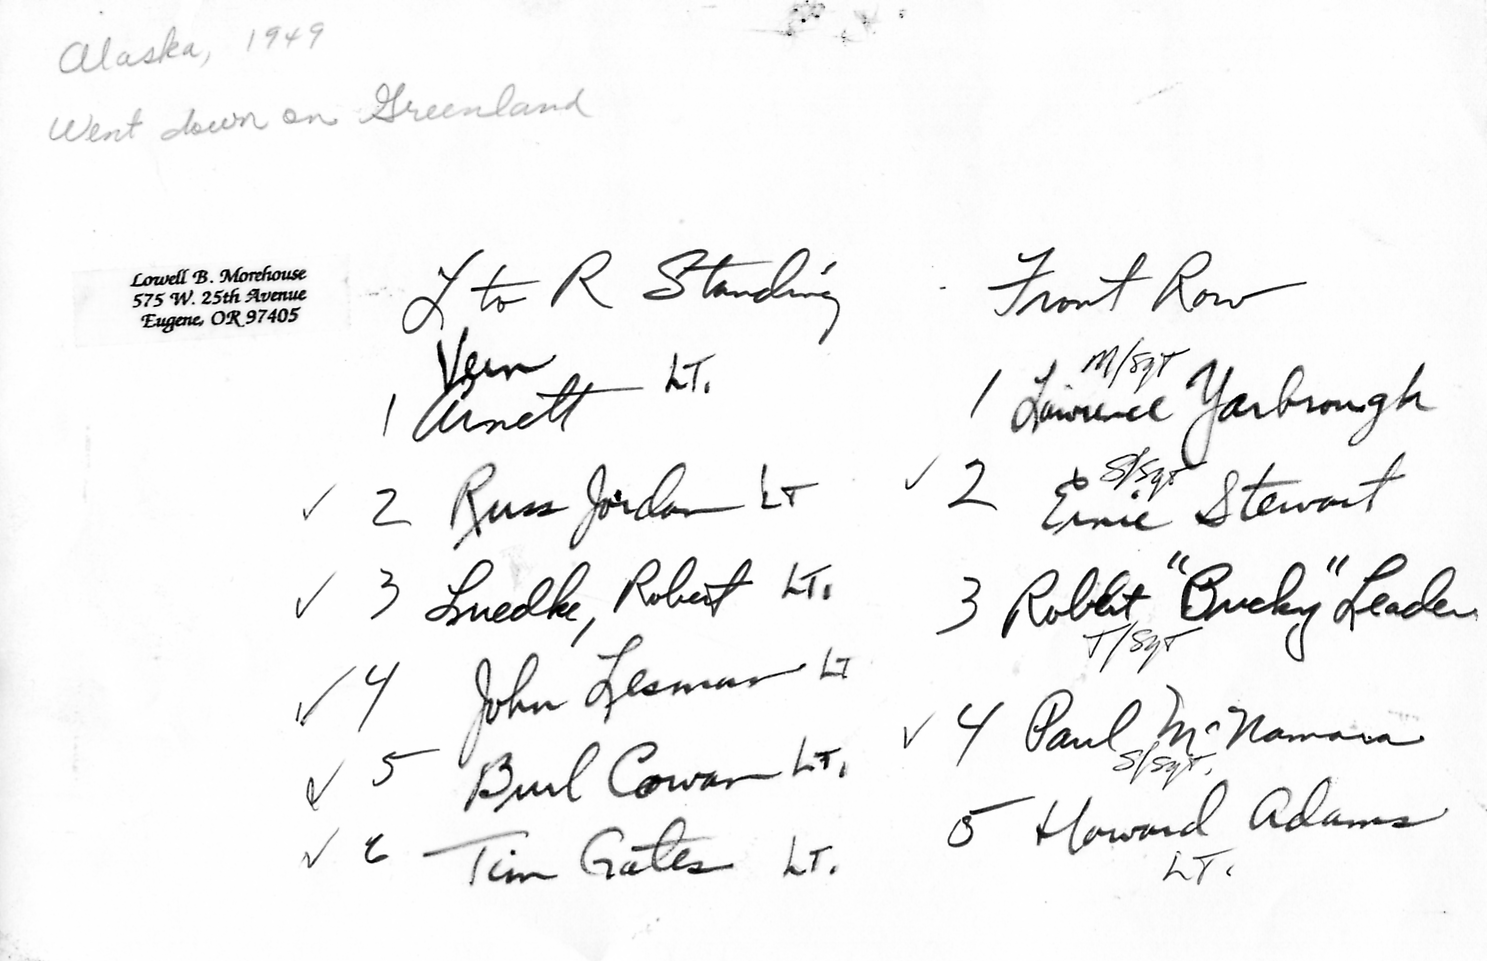 Alaska, 1949
Went down on Greenland
Lowell B. Morehouse
575 W. 25th Avenue
Eugene, OR 97405
L to R Standing
Vern
1 Arnett LT.
✓ 2 Russ Jordan LT
✓ 3 Luedke, Robert LT.
✓ 4 John Lesman LT
✓ 5 Burl Cowan LT.
✓ 6 Tim Gates LT.
Front Row
M/Sgt
1 Lawrence Yarbrough
S/Sgt
✓ 2 Ernie Stewart
3 Robert "Bucky" Leader
T/Sgt
✓ 4 Paul McNamara
S/Sgt.
5 Howard Adams
LT.